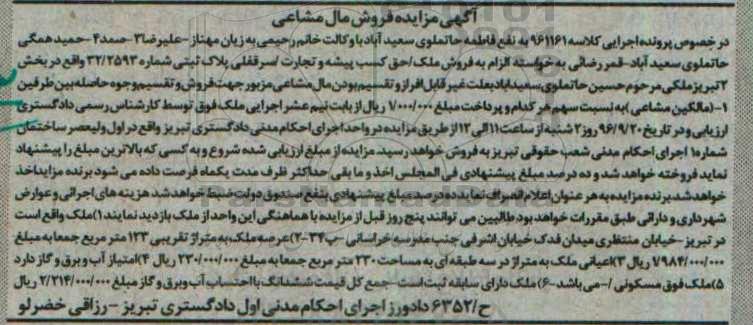 آگهی مزایده فروش مال مشاعی
در خصوص پرونده اجرایی کلاسه ۹۶۱۱۶۱ به نفع فاطمه حاتملوی سعید آباد با وکالت خانم رحیمی به زیان مهناز -علیرضا۳-صمد۴-حمید همگی
حاتملوی سعید آباد-قمر رضائی به خواسته الزام به فروش ملک/حق کسب پیشه و تجارت /سرقفلی پلاک ثبتی شماره ۳۲/۲۵۹۳ واقع در بخش
۲ تبریز ملکی مرحوم حسین حاتملوی سعیدآباد بعلت غیر قابل افراز و تقسیم بودن مال مشاعی مزبور جهت فروش و تقسیم وجوه حاصله بین طرفین
۱-(مالکین مشاعی )به نسبت سهم هر کدام و پرداخت مبلغ ۷۰۰۰/۰۰۰ ریال از بابت نیم عشر اجرایی ملک فوق توسط کارشناس رسمی دادگستری
ارزیابی و در تاریخ ۹۶/۹/۲۰ روز ۲ شنبه از ساعت ۱۱ الی ۱۲ از طریق مزایده در واحد اجرای احکام مدنی دادگستری تبریز واقع در اول ولیعصر ساختمان
شماره۱ اجرای احکام مدنی شعب حقوقی تبریز به فروش خواهد رسید. مزایده از مبلغ ارزیابی شده شروع و به کسی که بالاترین مبلغ را پیشنهاد
نماید فروخته خواهد شد و ده درصد مبلغ پیشنهادی فی المجلس اخذ و ما بقی حداکثر ظرف مدت یکماه فرصت داده می شود برنده مزایده اخذ
خواهد شد برنده مزایده به هر عنوان اعلام انصراف نماید ده درصد مبلغ پیشنهادی بنفع صندوق دولت ضبط خواهد شد هزینه های اجرائی و عوارض
شهرداری و دارائی طبق مقررات خواهد بود طالبین می توانند پنج روز قبل از مزایده با هماهنگی این واحد از ملک بازدید نمایند ۱)ملک واقع است
در تبریز -خیابان منتظری میدان فدک خیابان اشرفی جنب مدرسه خراسانی -پ۳۴-۲)عرصه ملک به متراژ تقریبی ۱۲۳ متر مربع جمعا به مبلغ
۷۹۸۴/۰۰۰/۰۰۰ ریال ۳)اعیانی ملک به متراژ در سه طبقه ای به مساحت ۲۳۰ متر مربع جمعا به مبلغ ۲۳۰/۰۰۰/۰۰۰ ریال ۴)امتیاز آب و برق و گاز دارد
۵)ملک فوق مسکونی /-می باشد-۶)ملک دارای سابقه ثبت است-جمع کل قیمت ششدانگ با احتساب آب و برق و گاز مبلغ ۲/۲۱۴/۰۰۰/۰۰۰ ریال
ح/۶۳۵۲ دادورز اجرای احکام مدنی اول دادگستری تبریز -رزاقی خضرلو